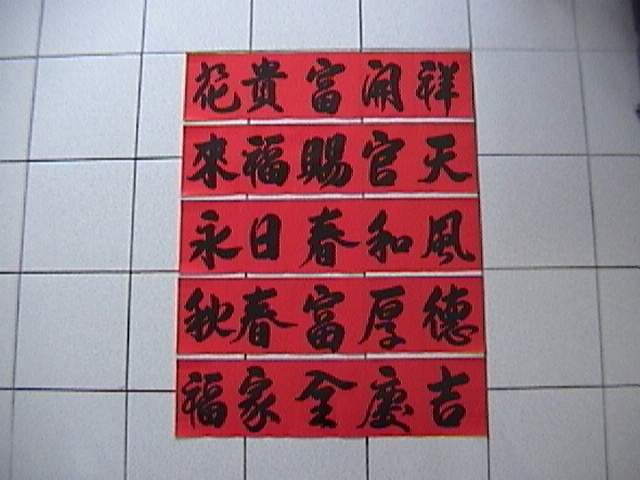 祥開富貴花
天官賜福來
風和日春永
德厚富春秋
吉慶全家福